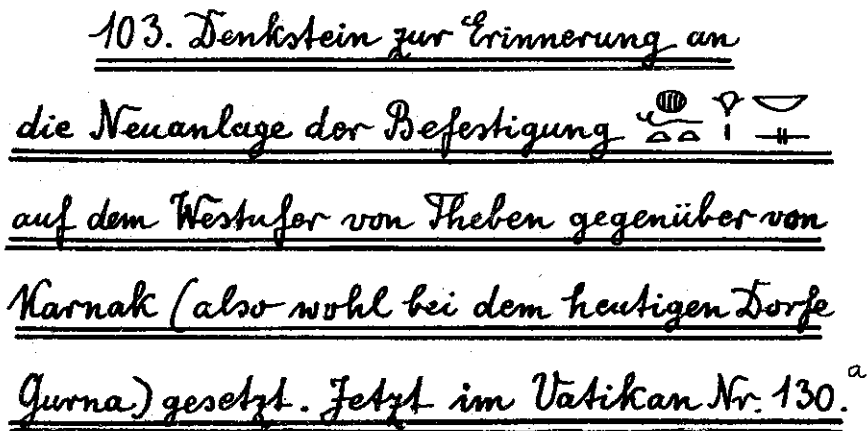 103. Denkstein zur Erinnerung an
die Neuanlage der Befestigung 𓐍𓆑𓏏𓏏𓁷𓏤𓎟𓊃
auf dem Westufer von Theben gegenüber von
Karnak (also wohl bei dem heutigen Dorfe
Gurna) gesetzt. Jetzt im Vatikan Nr. 130.ᵃ